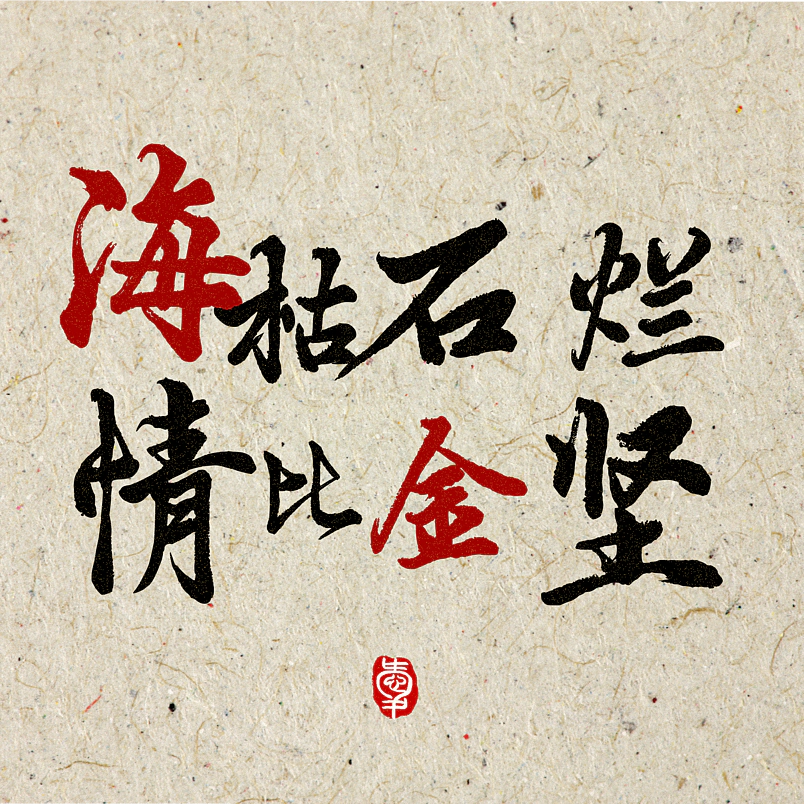 海枯石烂
情比金坚